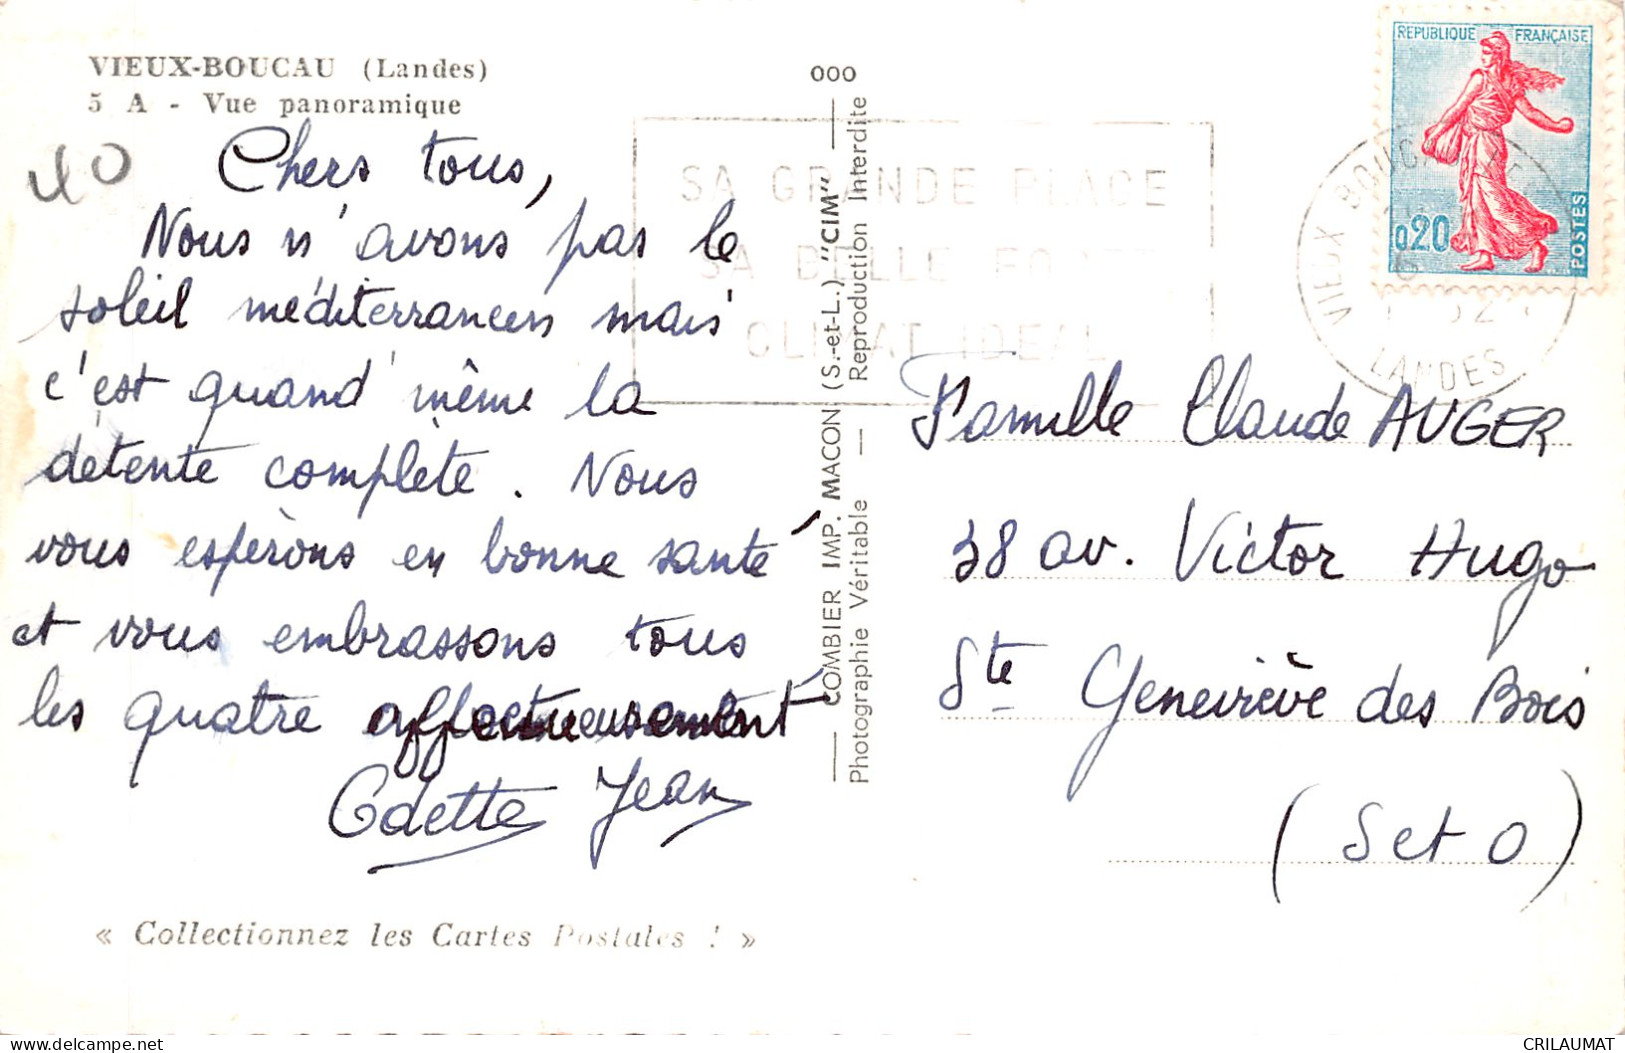 VIEUX-BOUCAU (Landes)
5 A - Vue panoramique
40
Chers tous,
Nous n'avons pas le
soleil méditerranéen mais
c'est quand même la
détente complète. Nous
vous espérons en bonne santé
et vous embrassons tous
les quatre affectueusement
Odette Jean
« Collectionnez les Cartes Postales ! »
000
COMBIER IMP. MACON (S.-et-L.) "CIM"
Photographie Véritable — Reproduction Interdite
SA GRANDE PLAGE
SA BELLE
CLIMAT IDEAL
REPUBLIQUE FRANÇAISE
0,20
POSTES
VIEUX BOUCAU
LANDES
Famille Claude AUGER
38 av. Victor Hugo
Ste Geneviève des Bois
(S et O)
delcampe.net
CRILAUMAT